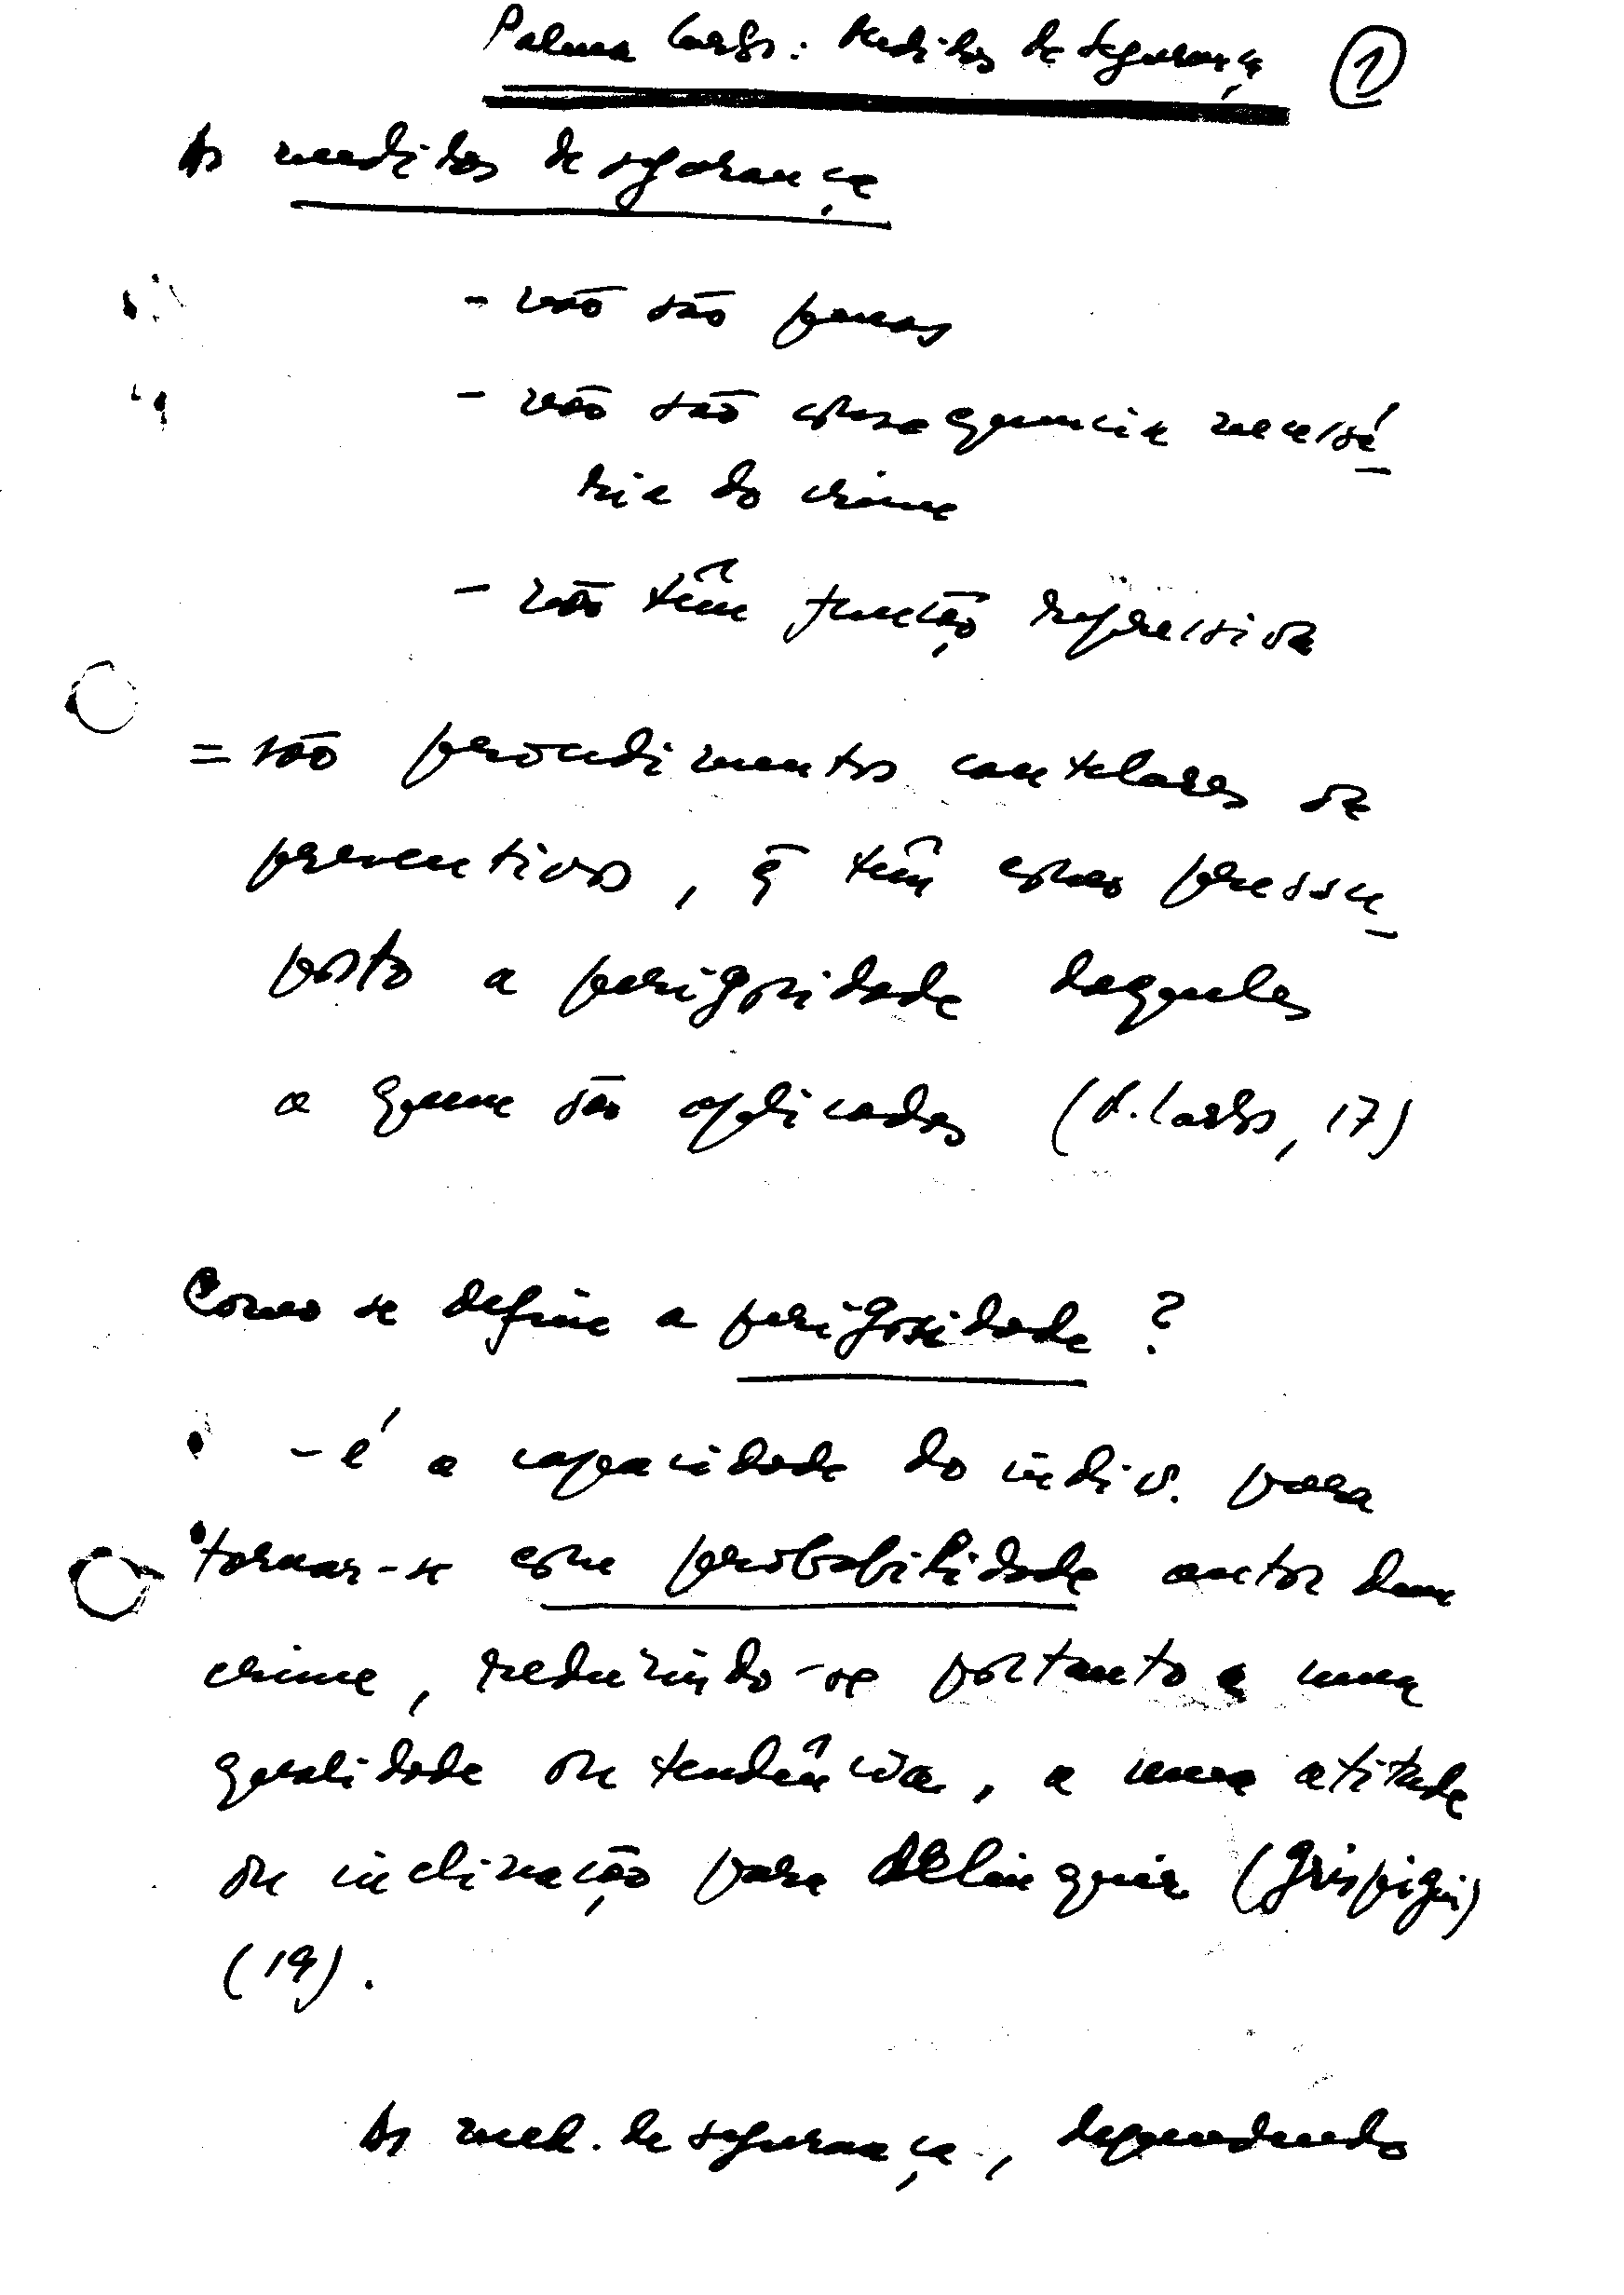 Palma Carlos: Medidas de Segurança ①
As medidas de segurança
- não são penas
- não são consequencia necessá
ria do crime
- não têm função repressiva
= são procedimentos cautelares ou
preventivos, q̄ têm como pressu
posto a perigosidade daqueles
a quem são aplicados (P. Carlos, 17)
Como se define a perigosidade?
- é a capacidade do indiv. para
tornar-se com probabilidade autor dum
crime, reduzindo-se portanto a uma
qualidade ou tendência, a uma atitude
ou inclinação para delinquir (Grispigni)
(19).
As med. de segurança, dependendo